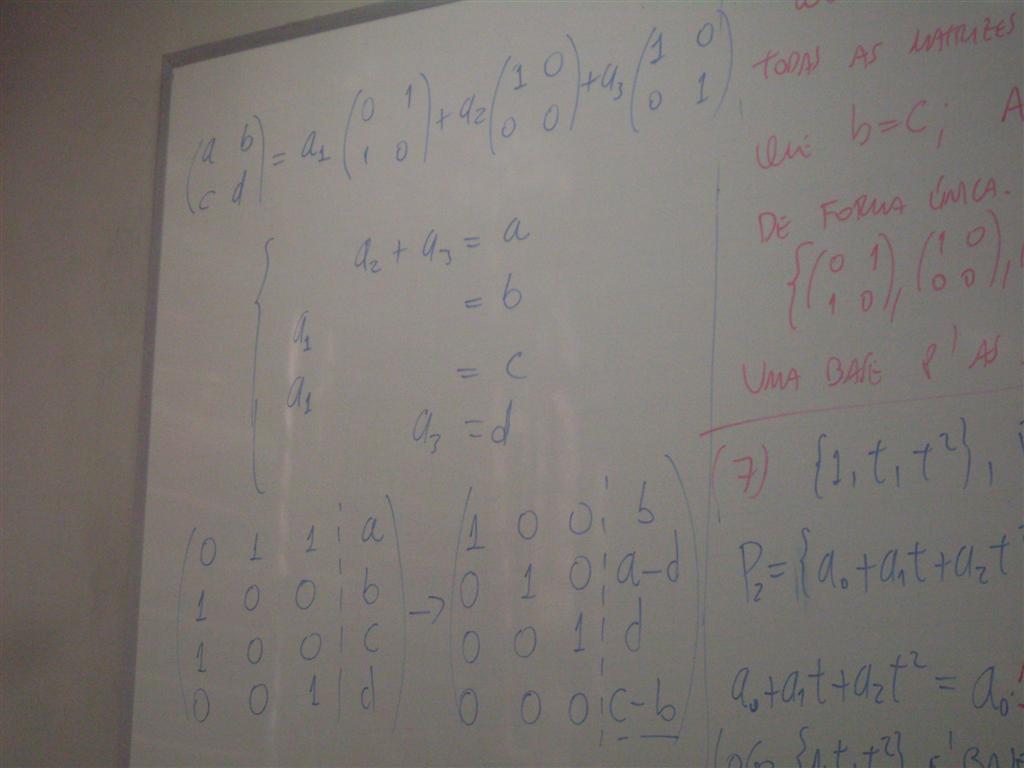 (a b; c d) = a₁ (0 1; 1 0) + a₂ (1 0; 0 0) + a₃ (1 0; 0 1)
{
a₂ + a₃ = a
a₁ = b
a₁ = c
a₃ = d
(0 1 1 ¦ a
1 0 0 ¦ b
1 0 0 ¦ c
0 0 1 | d)
→
(1 0 0 ¦ b
0 1 0 ¦ a-d
0 0 1 ¦ d
0 0 0 ¦ c-b)
TODAS AS MATRIZES
b=C; A
DE FORMA ÚNICA.
{(0 1; 1 0), (1 0; 0 0),
UMA BASE P/ AS
(7) {1, t, t²},
P₂={a₀+a₁t+a₂t²
a₀+a₁t+a₂t² = a₀.
LOGO {1, t, t²} É BASE